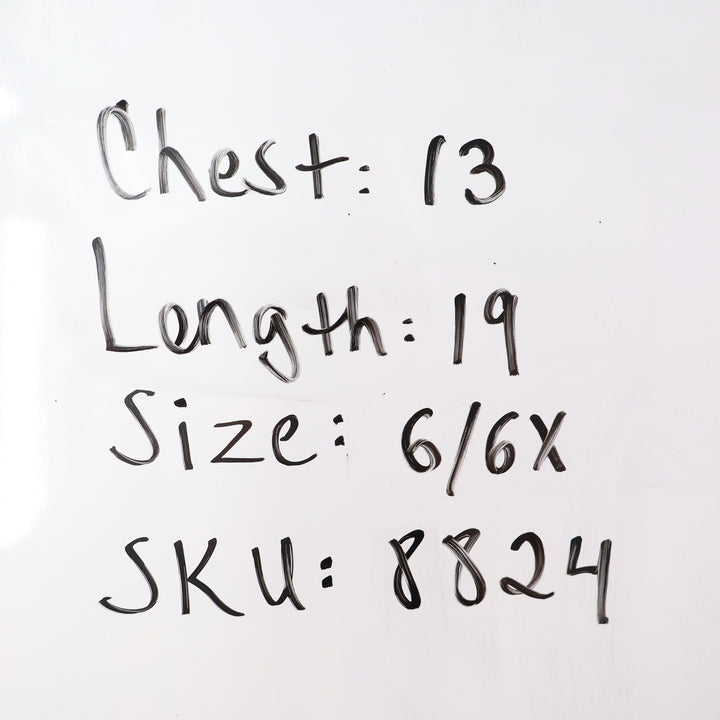 Chest: 13
Length: 19
Size: 6/6X
SKU: 8824